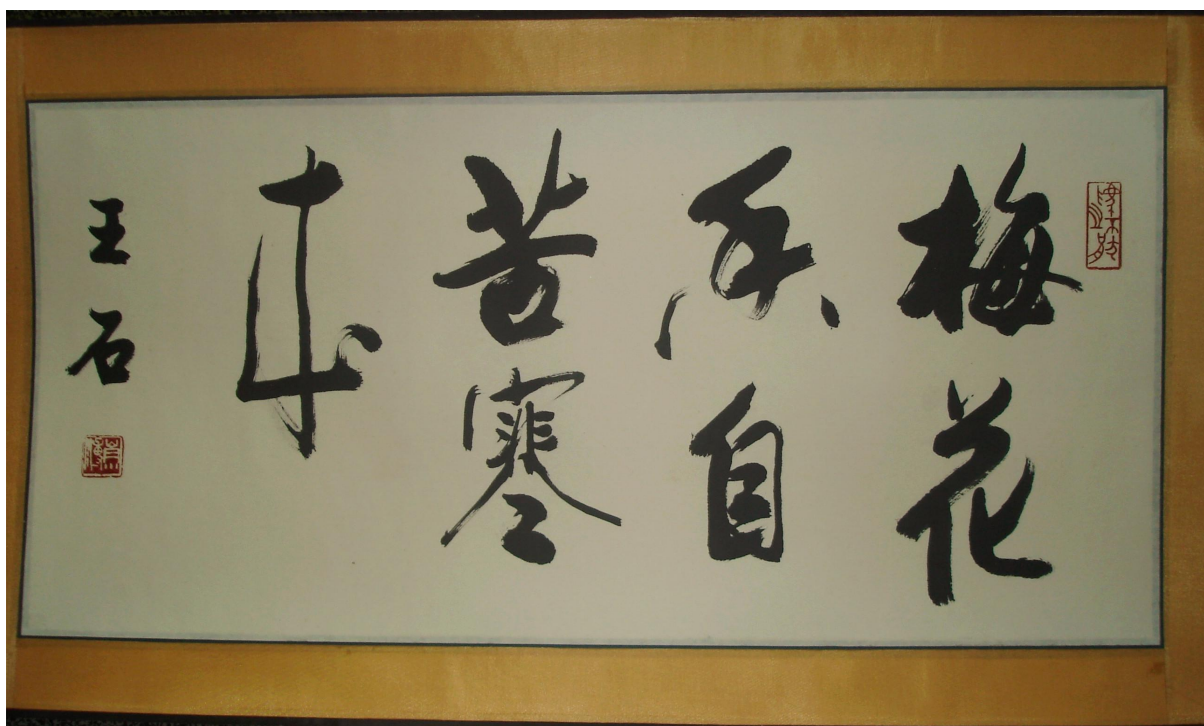 梅花
香自
苦寒
来
王石